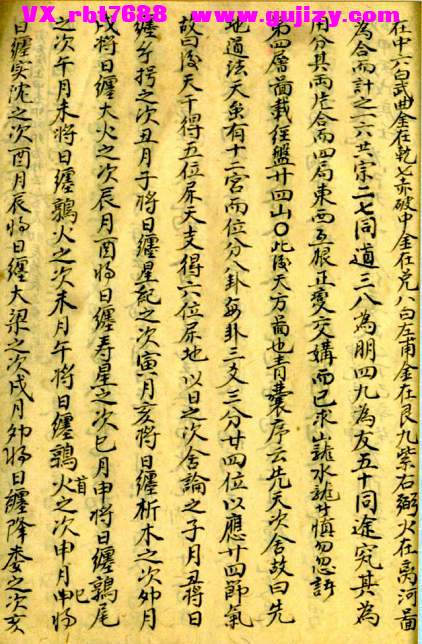 VX_rbt7688 www.gujizy.com
在中六白武曲金在乾七赤破中金在兑八白左甫金在艮九紫右弼火在离河啚
為合而計之一六共宗二七同道三八為朋四九為友五十同途究其為
用分其兩片合而四局東西互根正变交媾而已求山龍水龍廿慎勿忽諸
第四層啚載経盤廿四山〇此後天方啚也青囊序云先天次舍故曰先
地道法天矣有十二宫而位分八卦每卦三爻三分廿四位以應廿四節氣
故曰後天干得五位屎天支得六位屎地以日之次舍論之子月丑將日
缠玄枵之次丑月子將日纏星紀之次寅月亥將日缠析木之次卯月
戌將日纏大火之次辰月酉將日缠寿星之次巳月申將日纏鶉尾
之次午月未將日纏鶉火之次未月午將日纏鶉首火之次申月巳將
日缠实沈之次酉月辰將日缠大梁之次戌月卯將日纏降娄之次亥